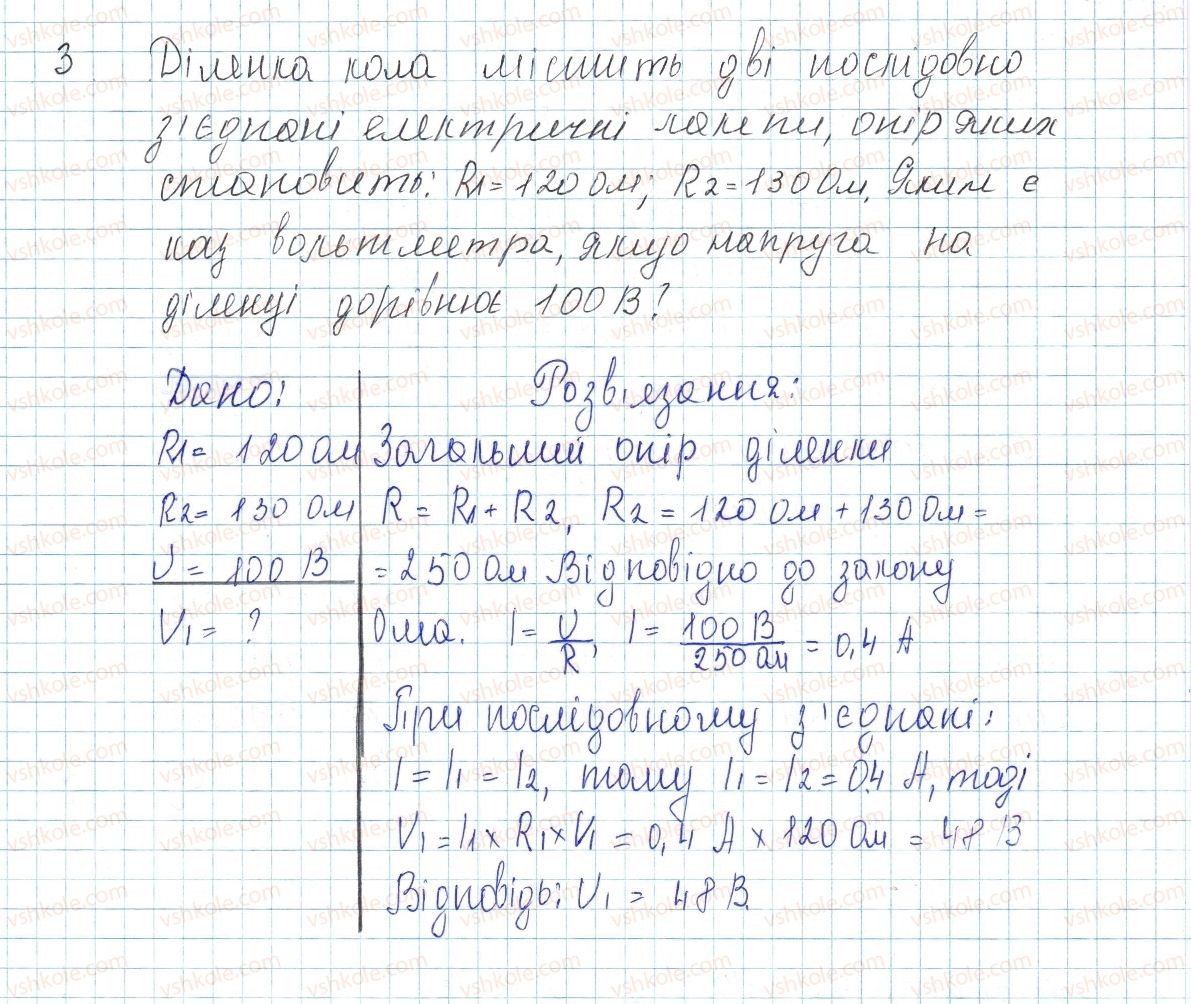 3 Ділянка кола містить дві послідовно
з'єднані електричні лампи, опір яких
становить: R1 = 120 Ом; R2 = 130 Ом. Яким є
каз вольтметра, якщо напруга на
ділянці дорівнює 100 В?
Дано:
R1 = 120 Ом
R2 = 130 Ом
U = 100 В
U1 = ?
Розв'язання:
Загальний опір ділянки
R = R1 + R2, R2 = 120 Ом + 130 Ом =
= 250 Ом Відповідно до закону
Ома. I = U/R, I = 100 В/250 Ом = 0,4 А
При послідовному з'єднані:
I = I1 = I2, тому I1 = I2 = 0,4 А, тоді
U1 = I1 × R1 × U1 = 0,4 А × 120 Ом = 48 В
Відповідь: U1 = 48 В.
vshkole.com